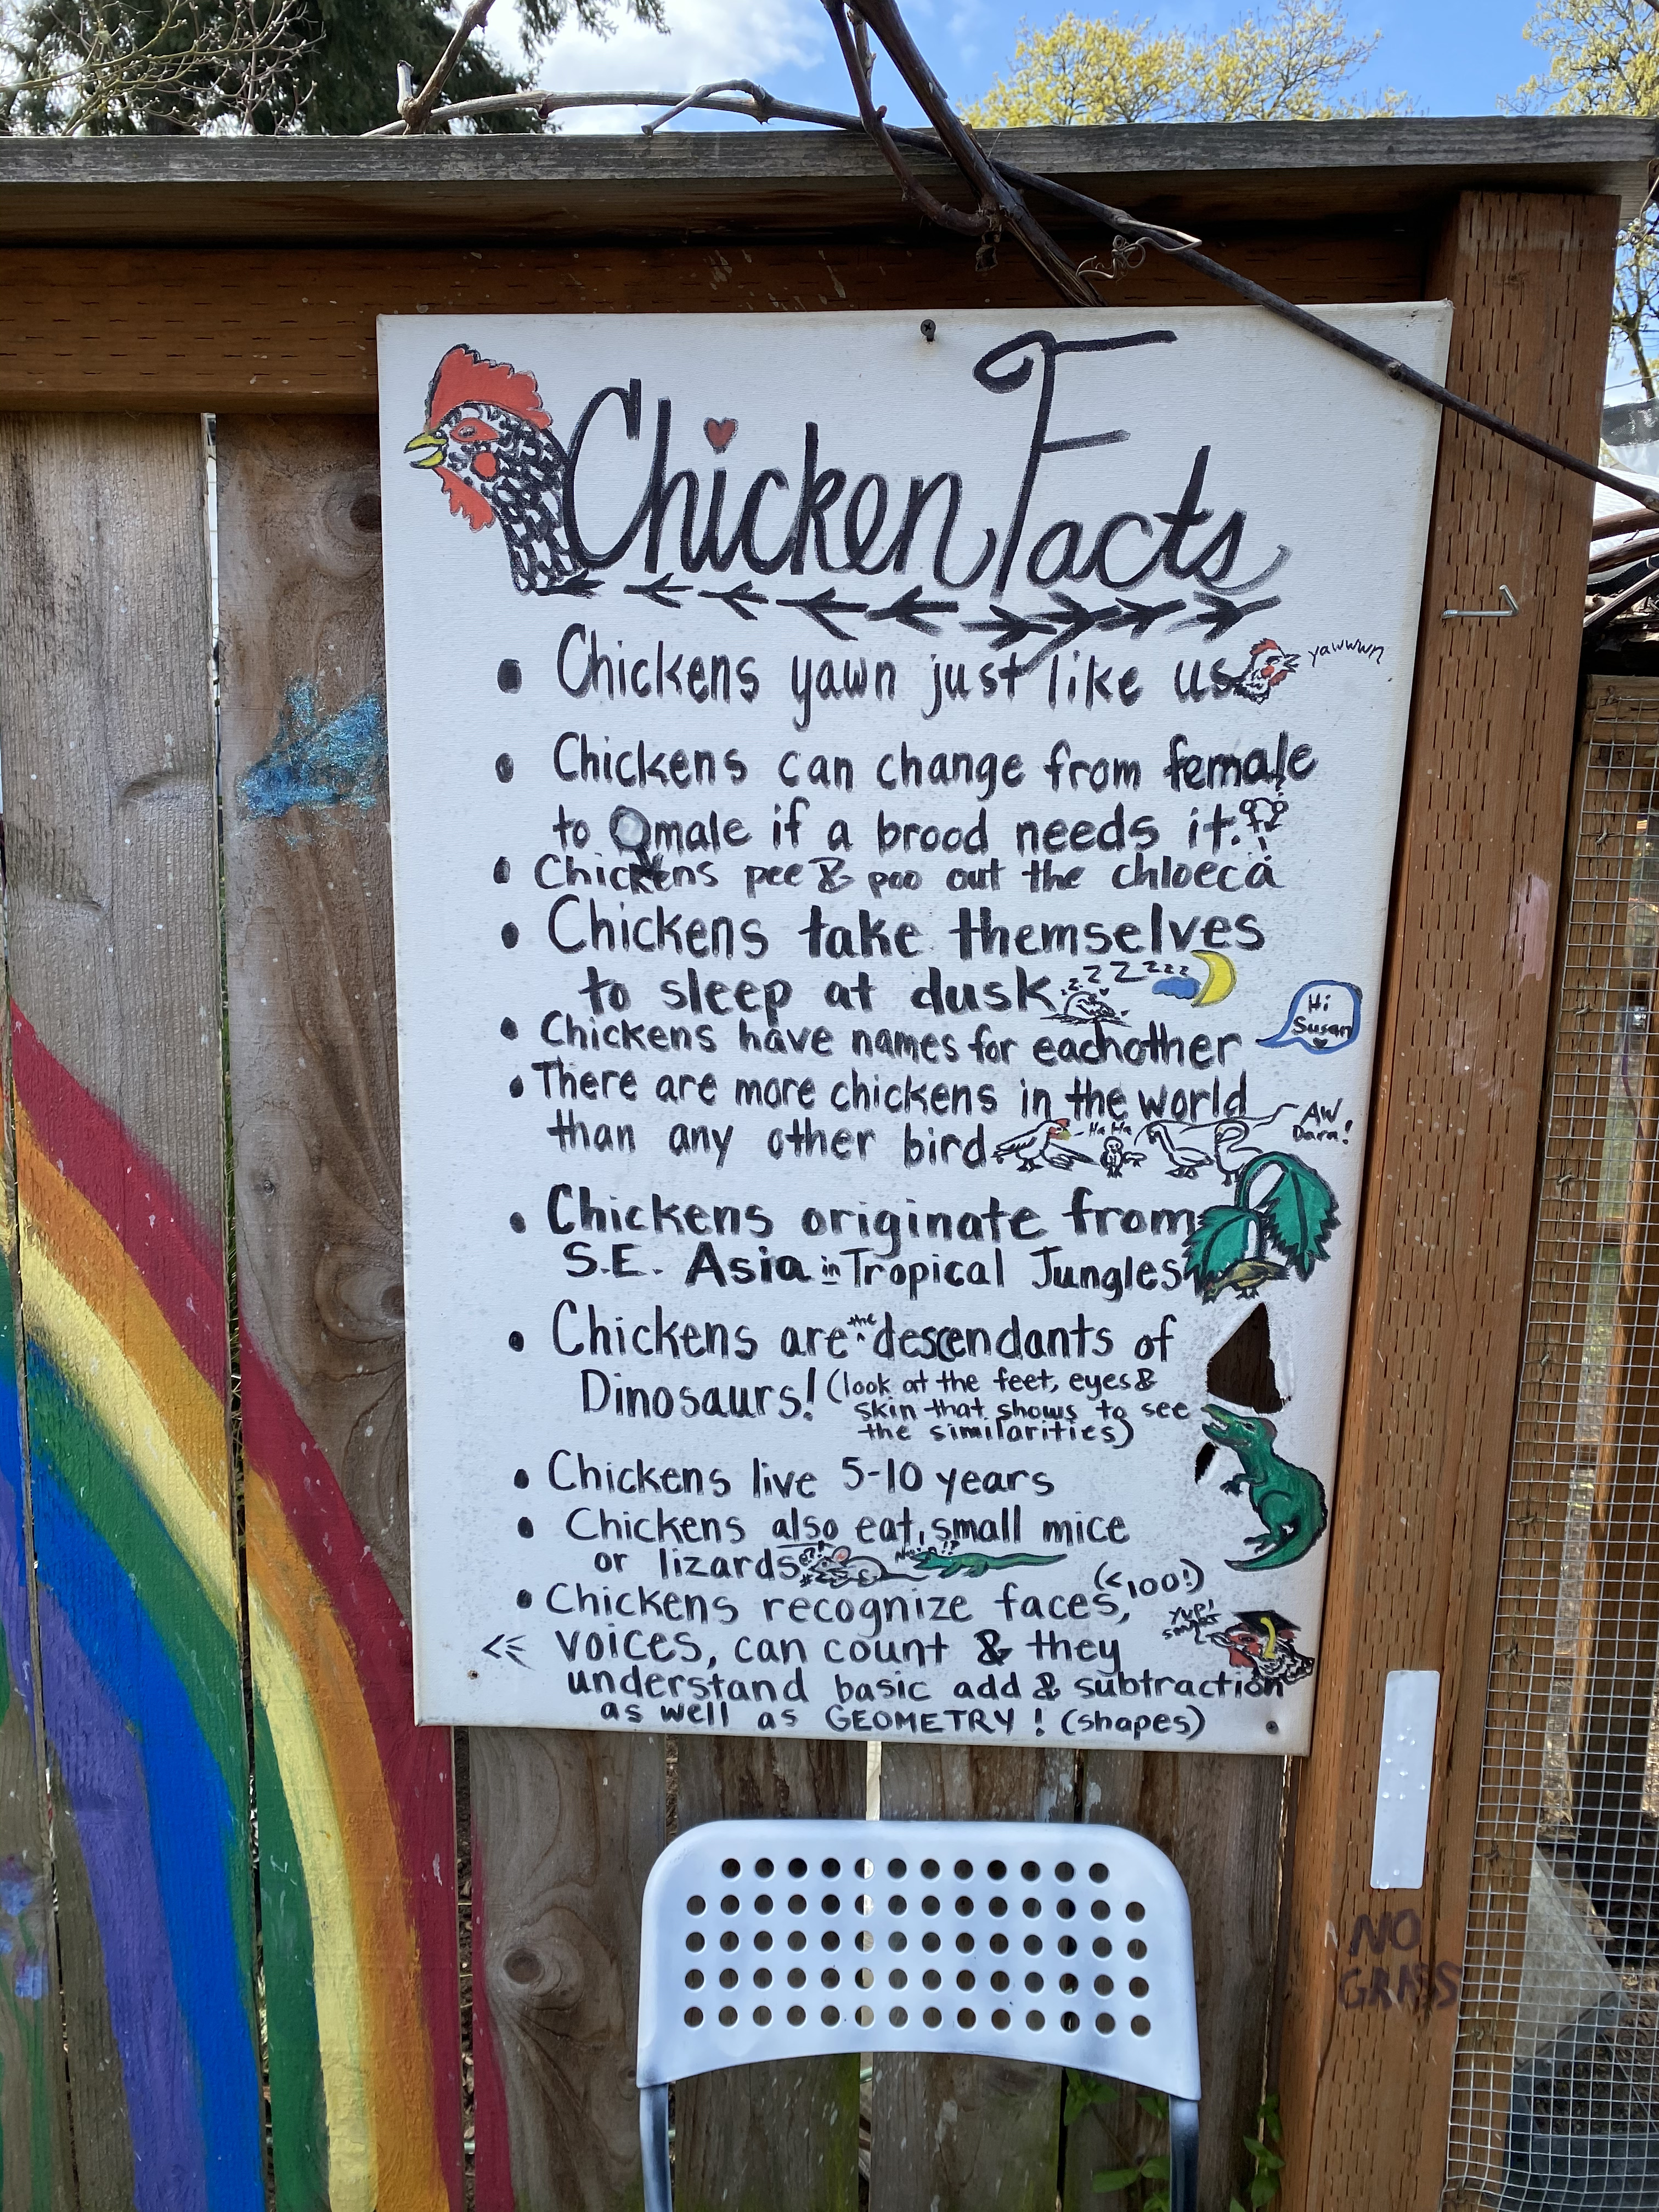 Chicken Facts
• Chickens yawn just like us
yawwwn
• Chickens can change from female
to male if a brood needs it.
• Chickens pee & poo out the chloeca
• Chickens take themselves
to sleep at dusk
z z Z Z z z z
• Chickens have names for eachother
Hi
Susan
• There are more chickens in the world
than any other bird
Ha Ha
AW
Darn!
• Chickens originate from
S.E. Asia in Tropical Jungles
• Chickens are the descendants of
Dinosaurs! (look at the feet, eyes &
skin that shows to see
the similarities)
• Chickens live 5-10 years
• Chickens also eat small mice
or lizards
• Chickens recognize faces, (<100!)
<< voices, can count & they
Yup!
smart
understand basic add & subtraction
as well as GEOMETRY! (shapes)
NO
GRASS